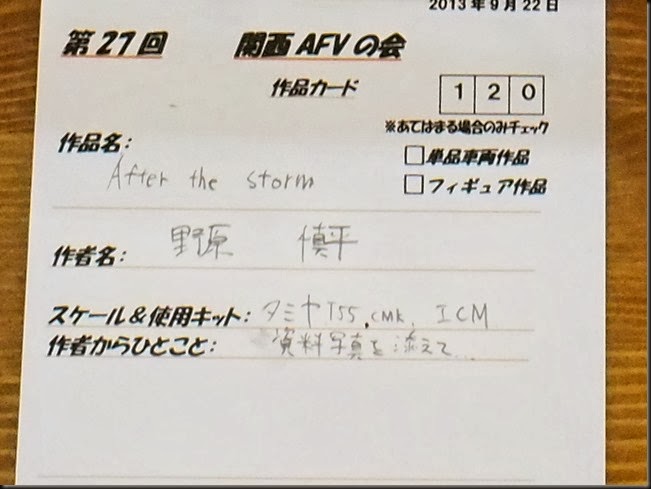 2013年9月22日
第27回 関西AFVの会
作品カード 120
※あてはまる場合のみチェック
作品名: After the storm
□単品車両作品
□フィギュア作品
作者名: 野原 慎平
スケール&使用キット: タミヤT55, CMK, ICM
作者からひとこと: 資料写真を添えて...